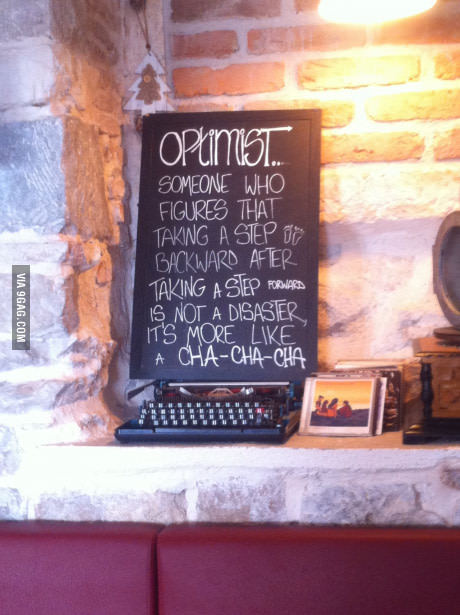 OPTIMIST...
SOMEONE WHO
FIGURES THAT
TAKING A STEP
BACKWARD AFTER
TAKING A STEP FORWARD
IS NOT A DISASTER,
IT'S MORE LIKE
A CHA-CHA-CHA
VIA 9GAG.COM